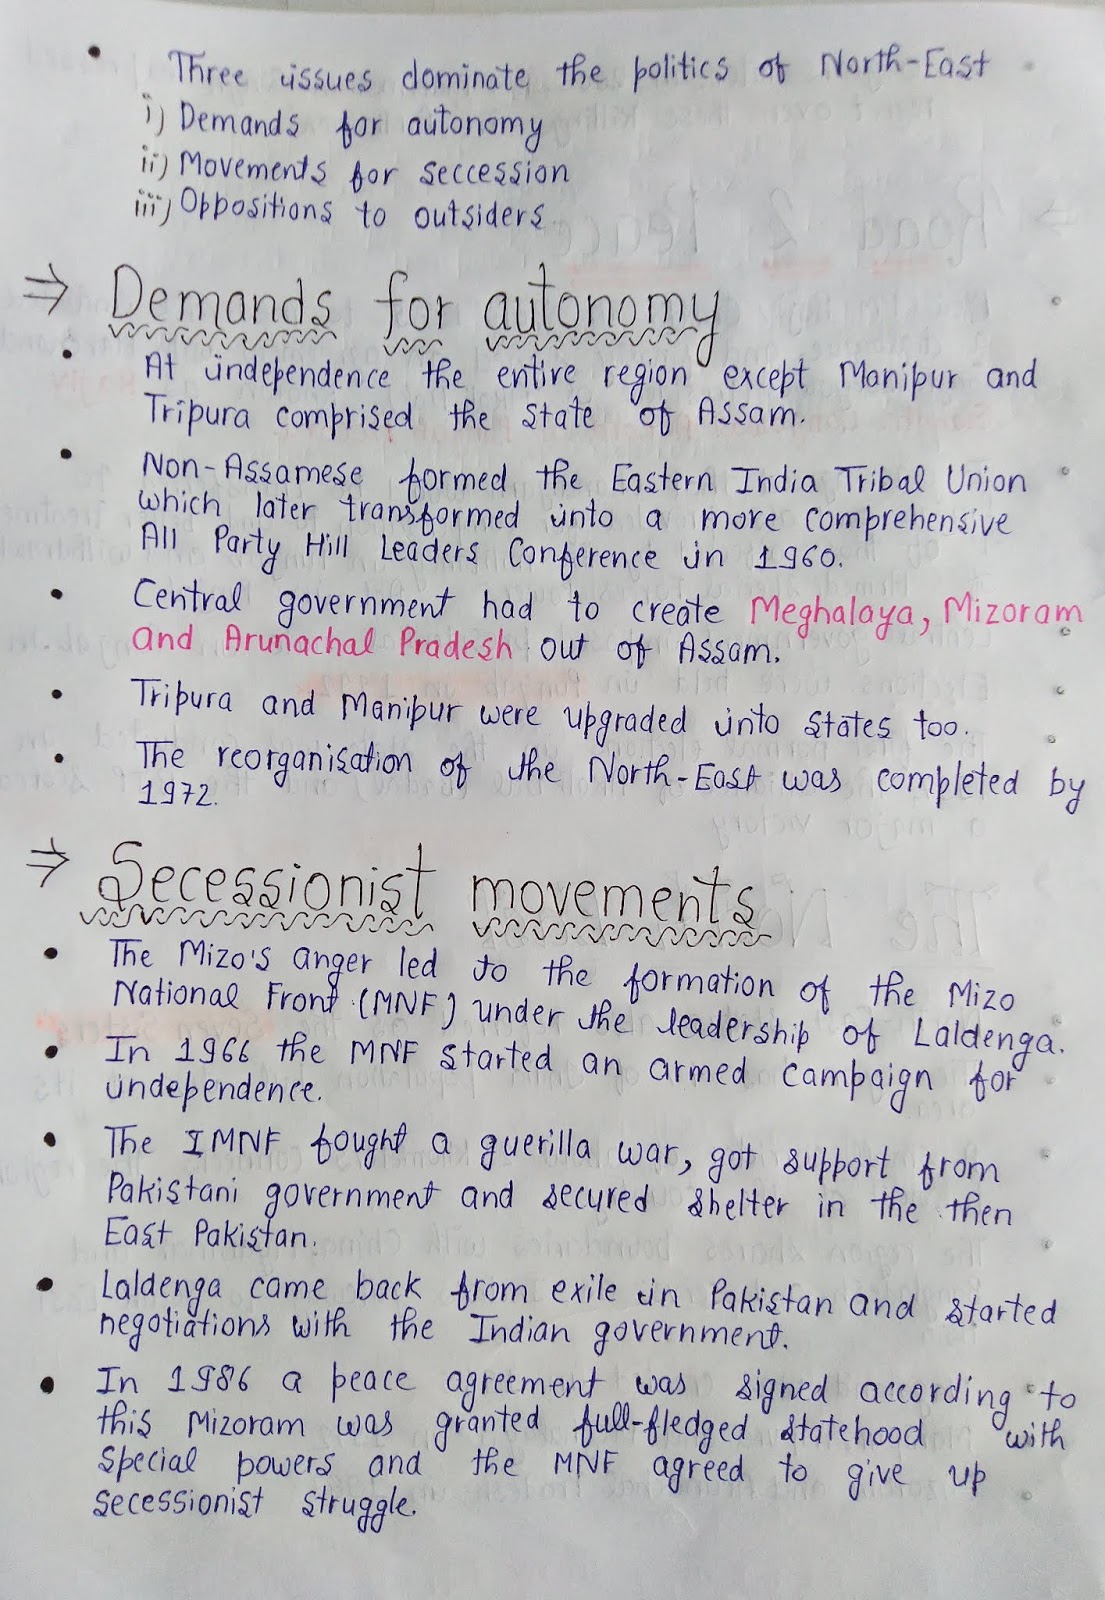 • Three issues dominate the politics of North-East
i) Demands for autonomy
ii) Movements for seccession
iii) Oppositions to outsiders
⇒ Demands for autonomy
• At independence the entire region except Manipur and
Tripura comprised the state of Assam.
• Non-Assamese formed the Eastern India Tribal Union
which later transformed into a more comprehensive
All Party Hill Leaders Conference in 1960.
• Central government had to create Meghalaya, Mizoram
and Arunachal Pradesh out of Assam.
• Tripura and Manipur were upgraded into states too.
• The reorganisation of the North-East was completed by
1972.
⇒ Secessionist movements
• The Mizo's anger led to the formation of the Mizo
National Front (MNF) under the leadership of Laldenga.
• In 1966 the MNF started an armed campaign for
independence.
• The IMNF fought a guerilla war, got support from
Pakistani government and secured shelter in the then
East Pakistan.
• Laldenga came back from exile in Pakistan and started
negotiations with the Indian government.
• In 1986 a peace agreement was signed according to
this Mizoram was granted full-fledged statehood with
special powers and the MNF agreed to give up
secessionist struggle.